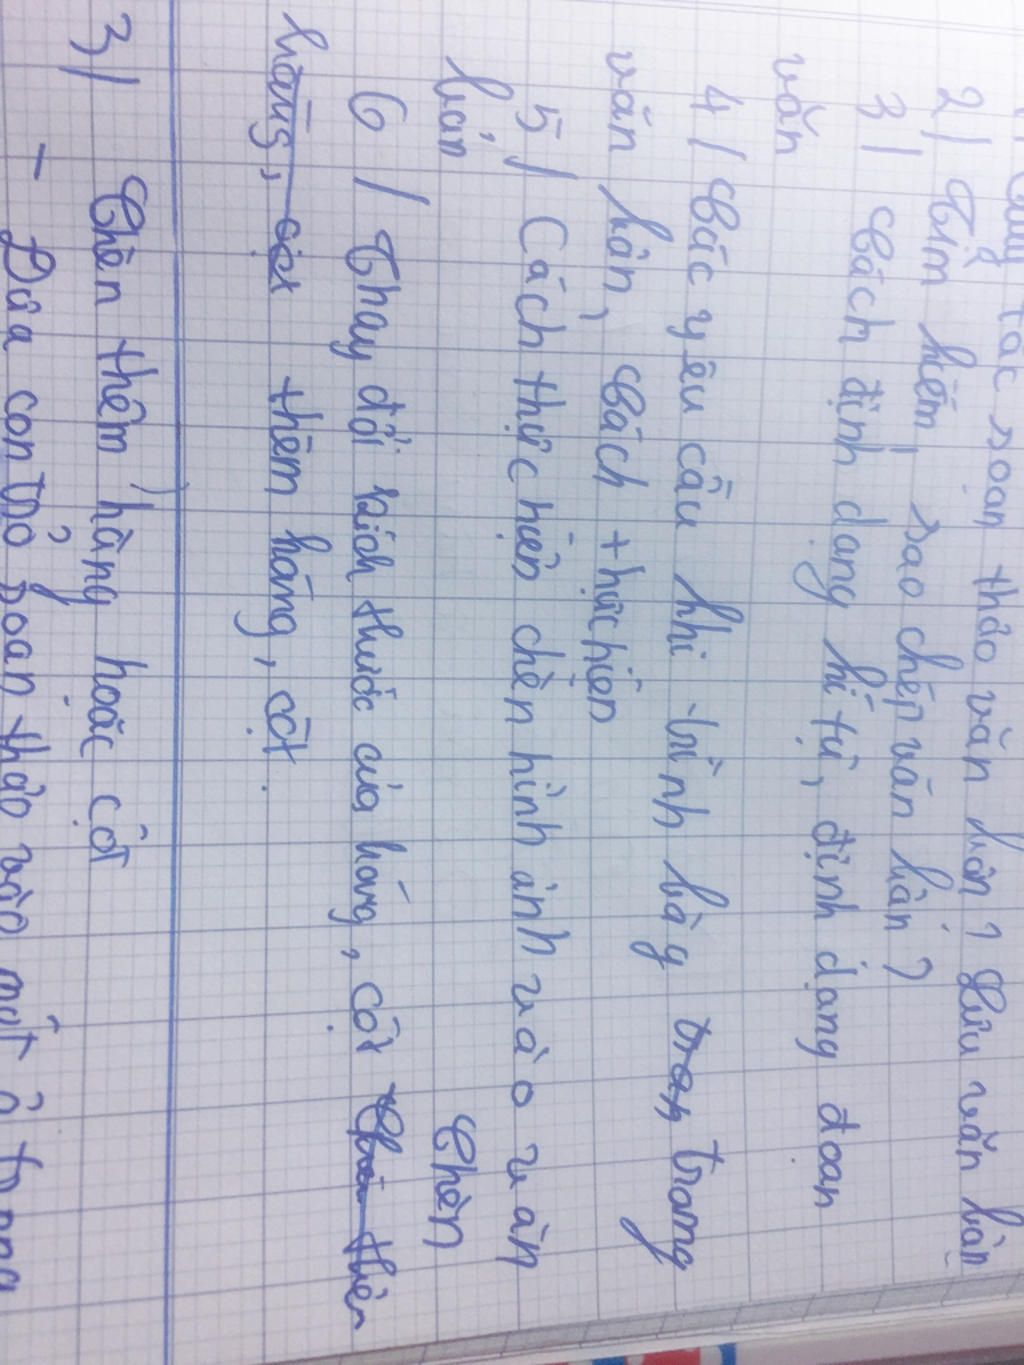 tắc soạn thảo văn bản? Lưu văn bản
2/ Tìm kiếm, sao chép văn bản?
3/ Cách định dạng kí tự, định dạng đoạn
văn
4/ Các yêu cầu khi trình bày trang
văn bản, Cách thực hiện
5/ Cách thực hiện chèn hình ảnh vào văn
bản
Chèn
6/ Thay đổi kích thước của hàng, cột
hàng, cột thêm hàng, cột.
3/ Chèn thêm hàng hoặc cột
- Đưa con trỏ soạn thảo vào một ô trong